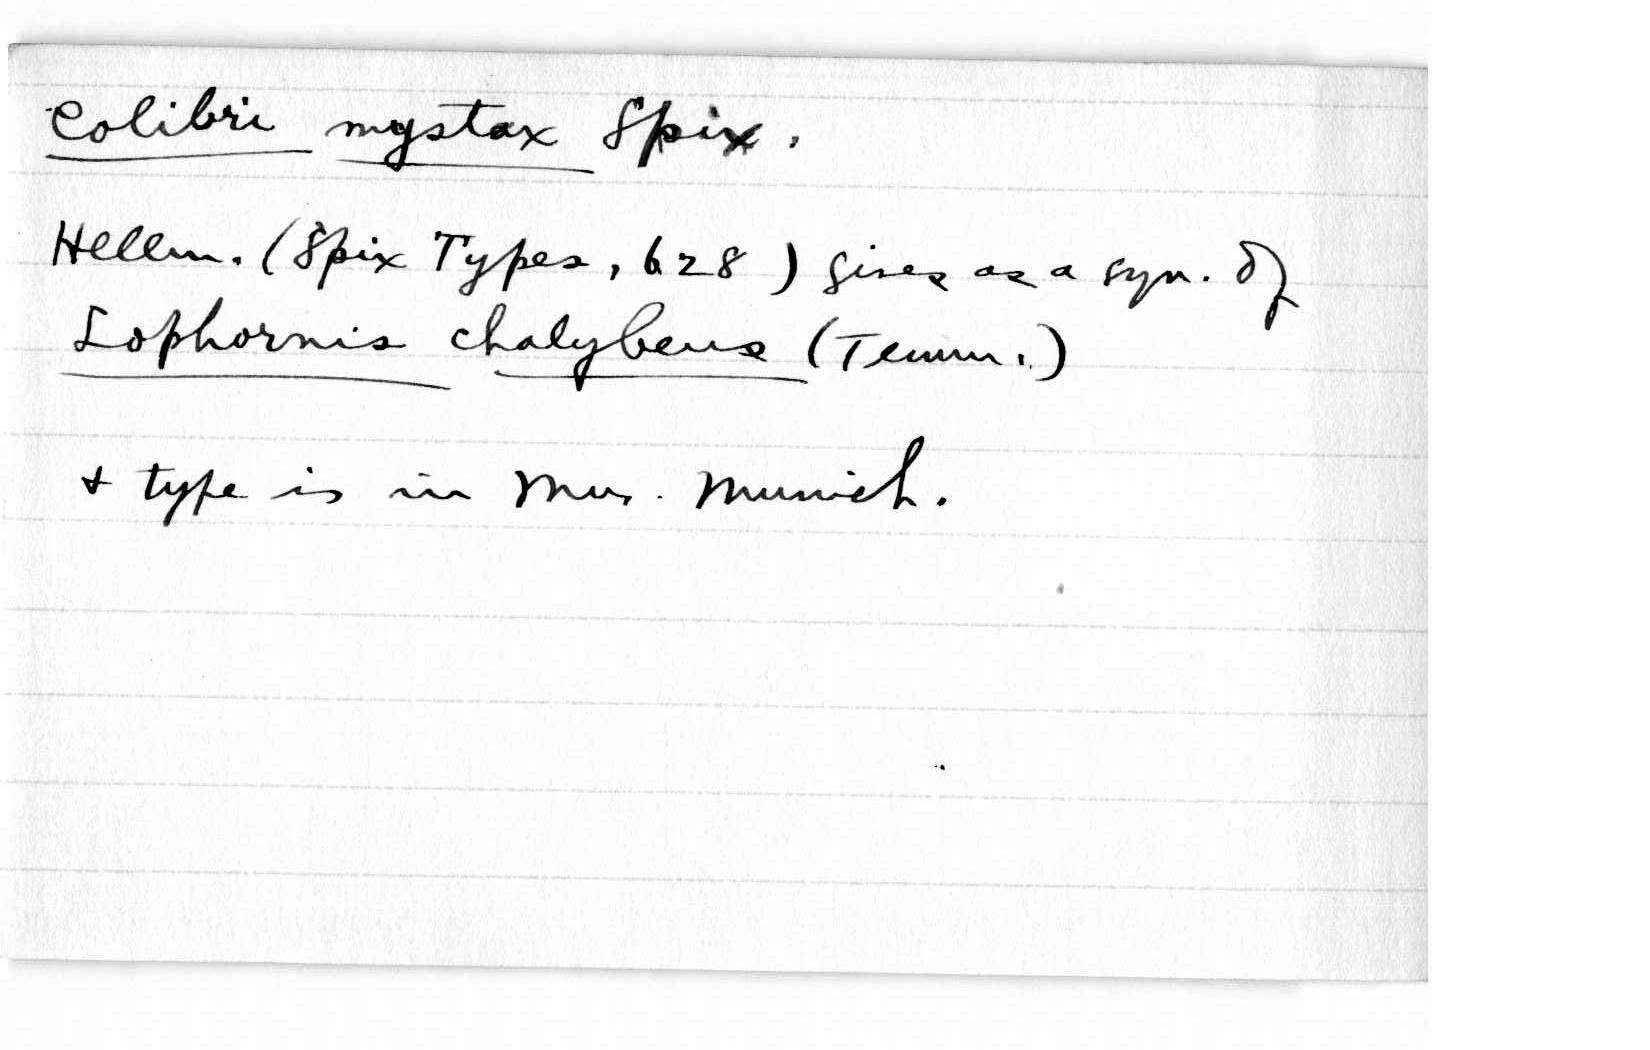 Colibri mystax Spix.
Hellm. (Spix Types, 628) gives as a syn. of
Lophornis chalybeus (Temm.)
& type is in Mus. Munich.